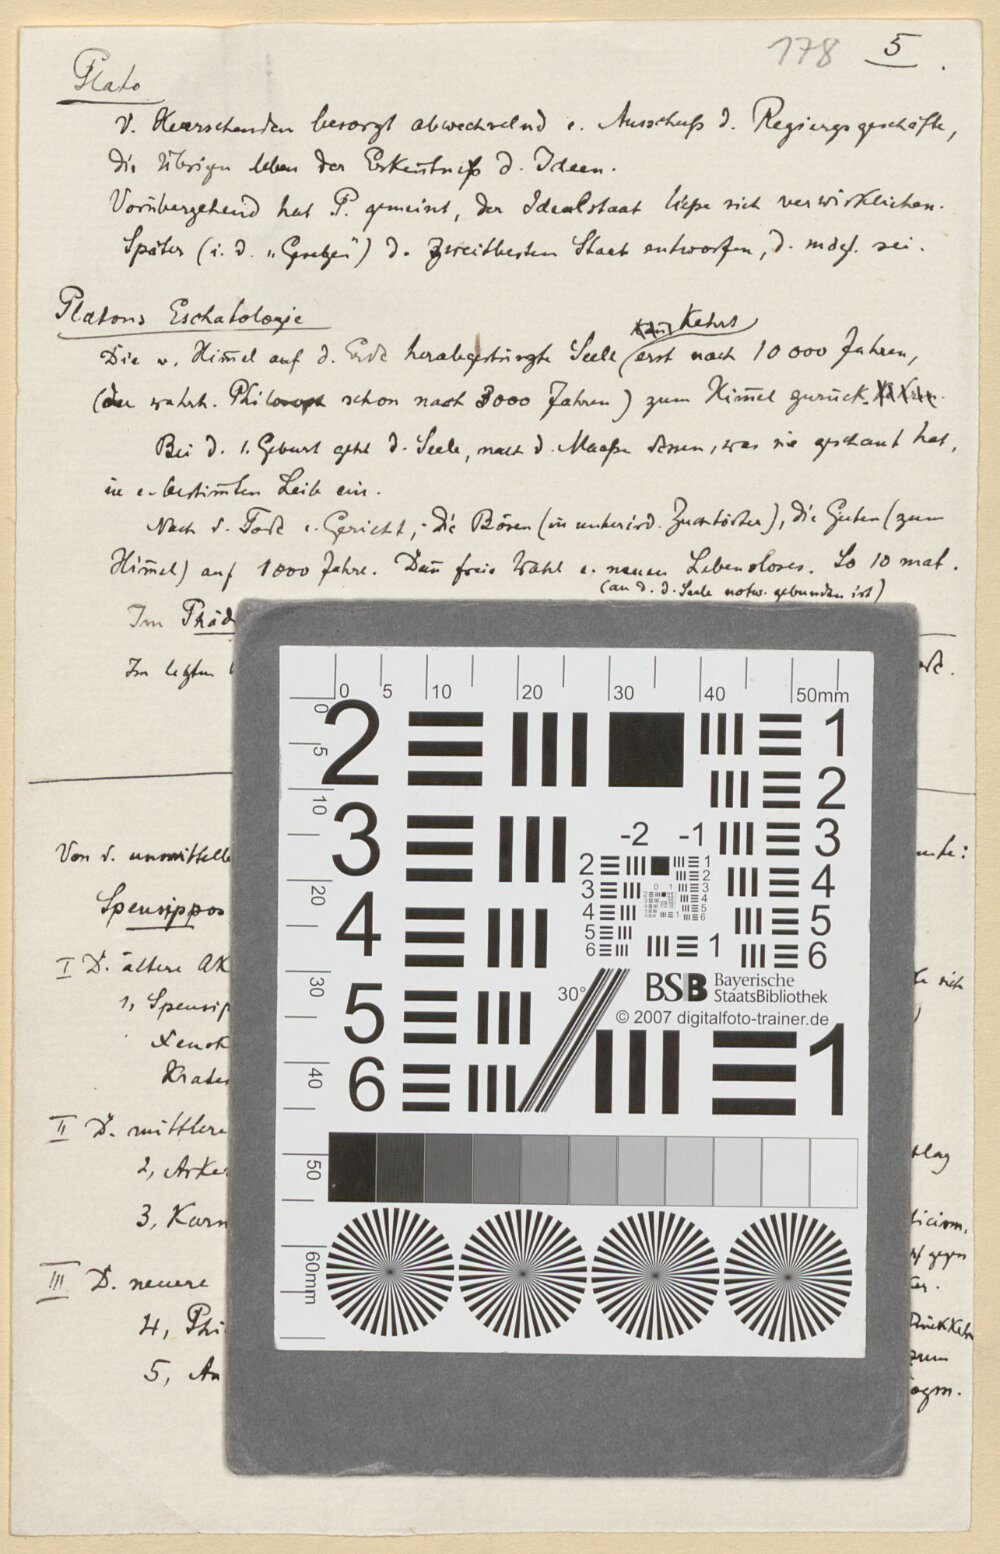 178 5.
Plato
D. Herrschenden besorgt abwechselnd e. Ausschuß d. Regiergsgeschäfte,
die Übrigen leben der Erkeñtniß d. Ideen.
Vorübergehend hat P. gemeint, der Idealstaat ließe sich verwirklichen.
Später (i. d. „Gesetzen") d. zweitbesten Staat entworfen, d. mögl. sei.
Platons Eschatologie
kehrt
Die v. Him̃el auf d. Erde herabgestürzte Seele erst nach 10000 Jahren,
(der wahrh. Philosoph schon nach 3000 Jahren) zum Him̃el zurück.
Bei d. 1. Geburt geht d. Seele, nach d. Maaße dessen, was sie geschaut hat,
in e. bestim̃ten Leib ein.
Nach d. Tode e. Gericht, die Bösen (in unterird. Zuchtörter), die Guten (zum
Him̃el) auf 1000 Jahre. Dañ freie Wahl e. neuen Lebensloses. So 10 mal.
(an d. d. Seele notw. gebunden ist)
Im Phäd
Im letzten
Von d. unmittelb
Speusippos
I D. ältere Ak
1, Speusip
Xenok
Krates
II D. mittlere
2, Arke
3, Karn
III D. neuere
4, Phi
5, An
0 5 10 20 30 40 50mm
0 5 10 20 30 40 50 60mm
2 1
2
3 -2 -1 3
4 4
5
6
5
6
2 1
3 2
4 3
5 4
6 5
6
1
30°
BSB Bayerische
StaatsBibliothek
© 2007 digitalfoto-trainer.de
1